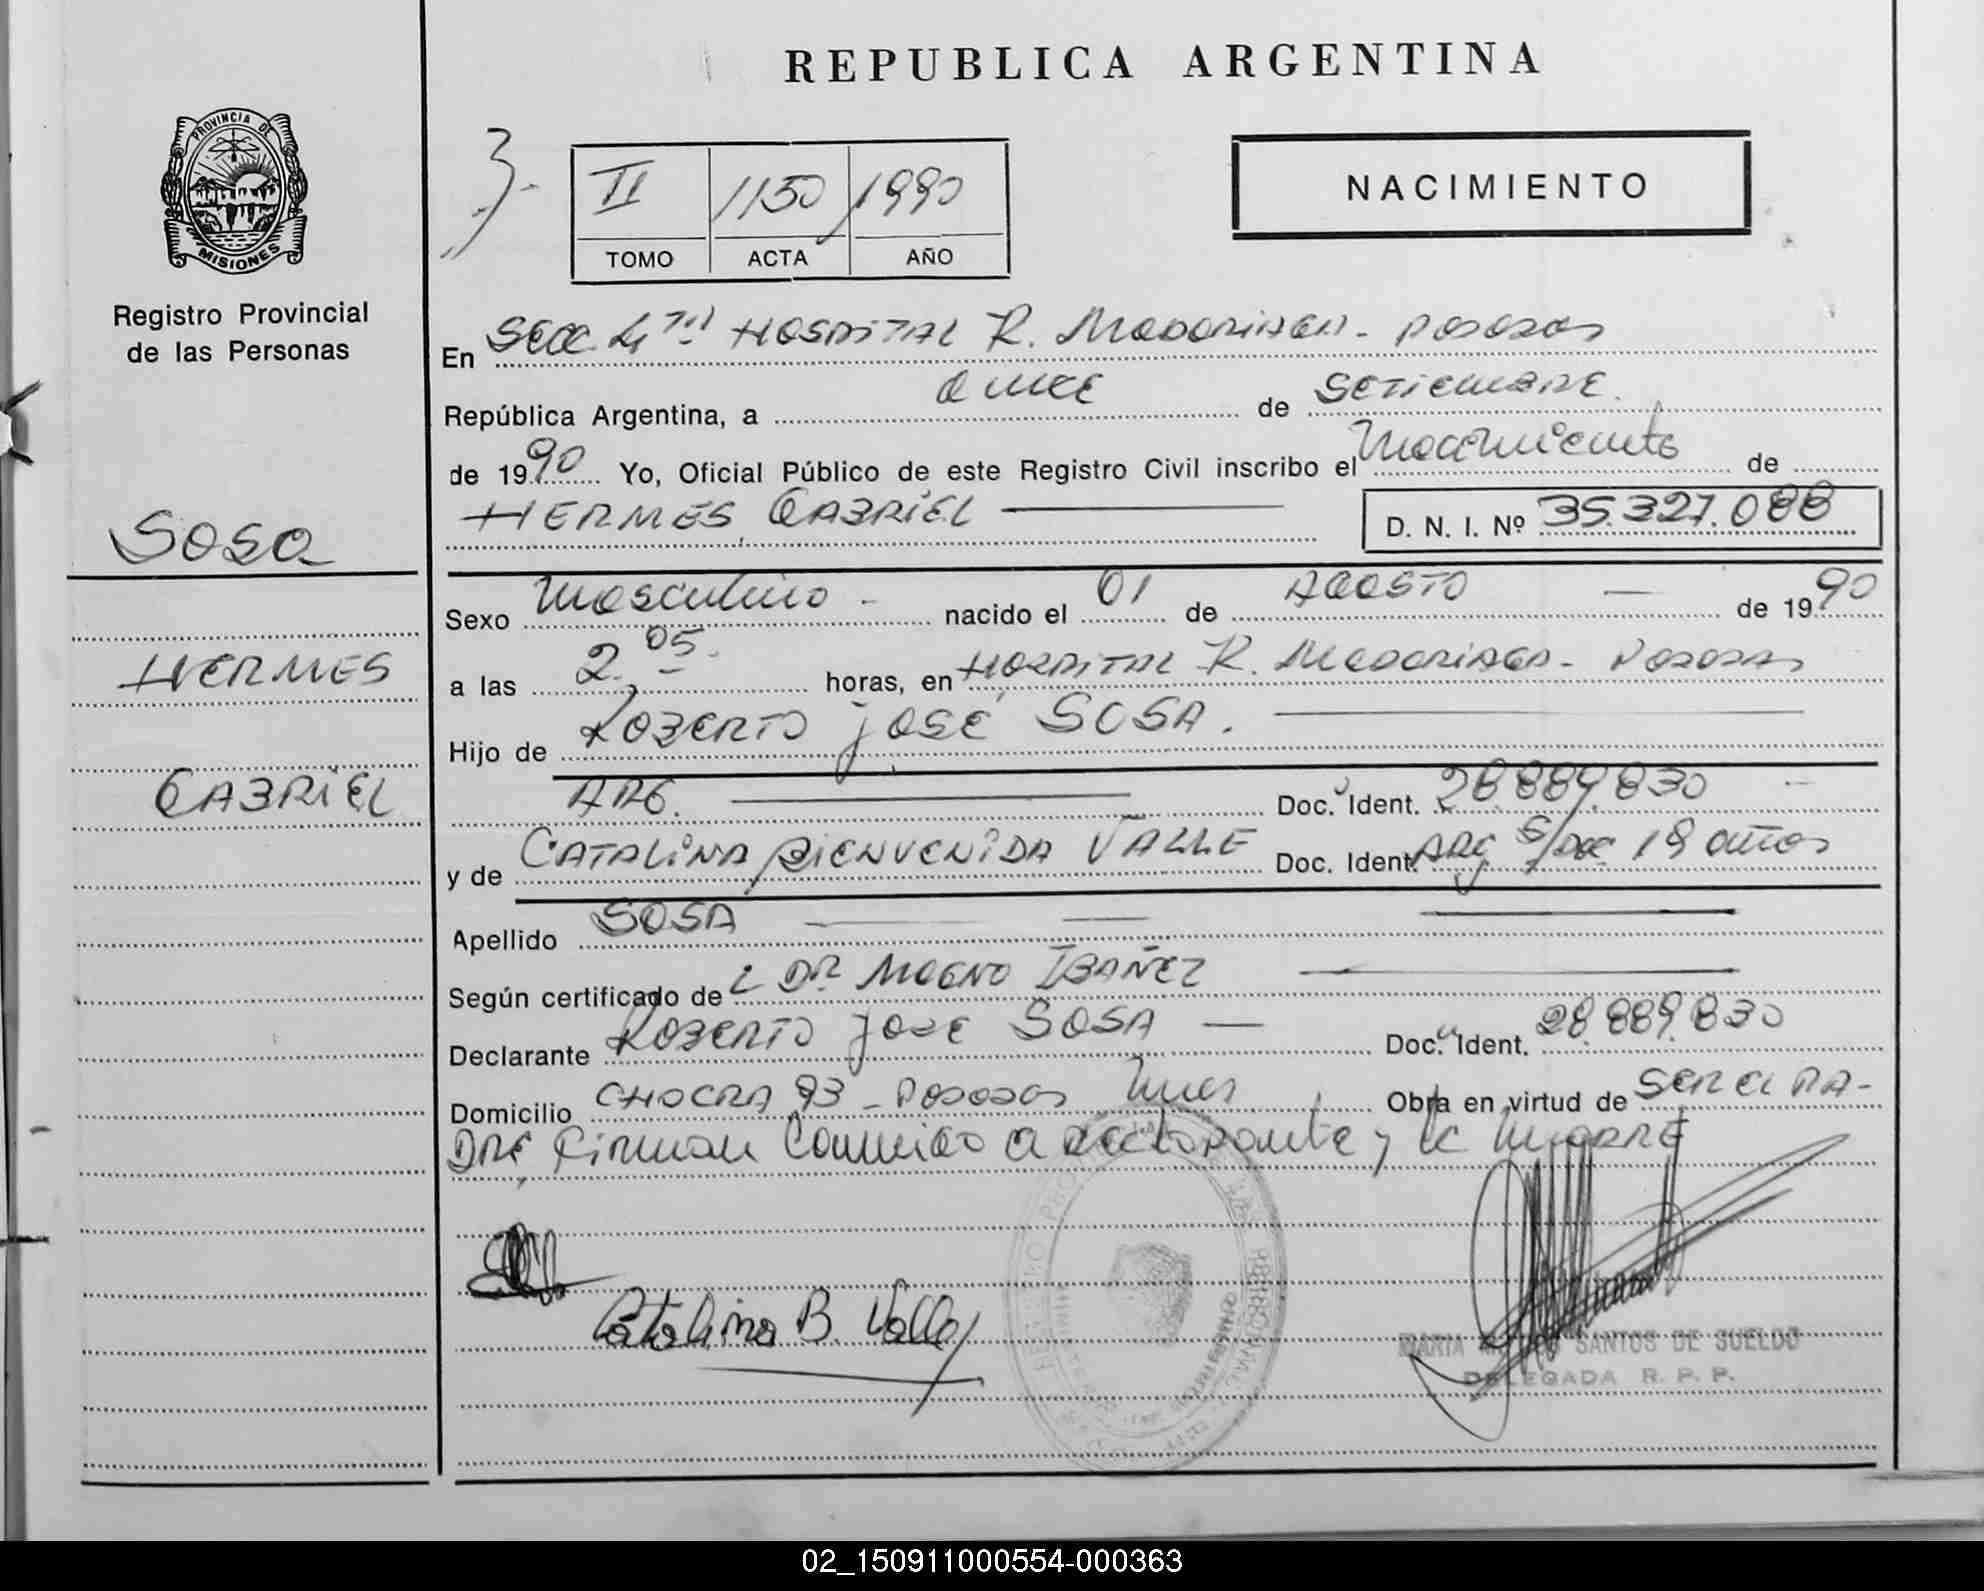 REPUBLICA ARGENTINA
PROVINCIA DE
MISIONES
Registro Provincial
de las Personas
3
II 1150 1990
TOMO ACTA AÑO
NACIMIENTO
En Secc 4ta HOSPITAL R. Madariaga - Posadas
República Argentina, a once de SETIEMBRE
de 1990 Yo, Oficial Público de este Registro Civil inscribo el Nacimiento de
HERMES GABRIEL
D. N. I. Nº 35.327.088
SOSA
HERMES
GABRIEL
Sexo Masculino - nacido el 01 de AGOSTO de 1990
a las 2.05 horas, en HOSPITAL R. MADARIAGA - POSADAS
Hijo de ROBERTO JOSÉ SOSA.
ARG. Doc. Ident. 28.889.830
y de CATALINA BIENVENIDA VALLE Doc. Ident. ARG S/Doc 19 años
Apellido SOSA
Según certificado de L DR MAGNO IBAÑEZ
Declarante ROBERTO JOSE SOSA Doc. Ident. 28.889.830
Domicilio CHACRA 93 - POSADAS Mnes Obra en virtud de SER EL PA-
DRE Firman Conmigo el declarante y la MADRE
Catalina B. Valle
MARIA SANTOS DE SUELDO
DELEGADA R. P. P.
02_150911000554-000363